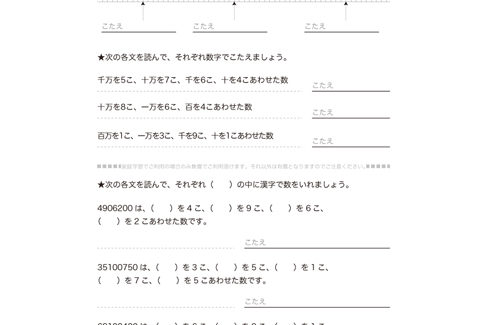 こたえ　こたえ　こたえ
★次の各文を読んで、それぞれ数字でこたえましょう。
千万を5こ、十万を7こ、千を6こ、十を4こあわせた数
こたえ
十万を8こ、一万を6こ、百を4こあわせた数
こたえ
百万を1こ、一万を3こ、千を9こ、十を1こあわせた数
こたえ
★次の各文を読んで、それぞれ（　　）の中に漢字で数をいれましょう。
4906200は、（　　）を4こ、（　　）を9こ、（　　）を6こ、
（　　）を2こあわせた数です。
こたえ
35100750は、（　　）を3こ、（　　）を5こ、（　　）を1こ、
（　　）を7こ、（　　）を5こあわせた数です。
こたえ